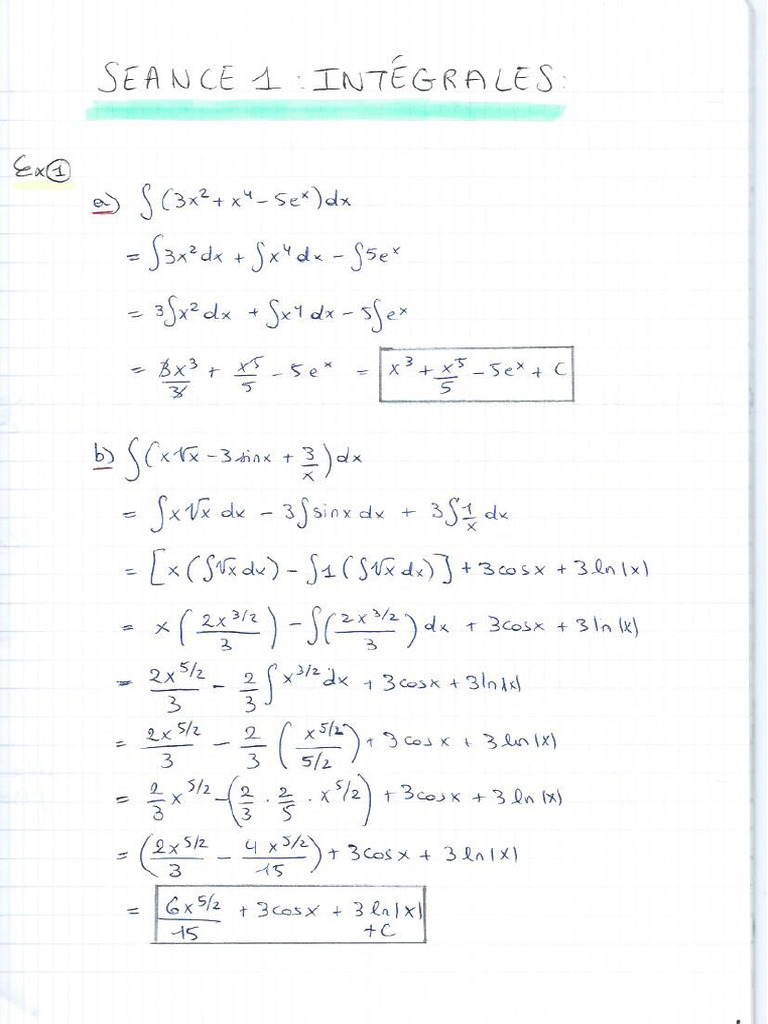 SEANCE 1 : INTÉGRALES:
Ex ①
a) ∫(3x² + x⁴ - 5eˣ)dx
= ∫3x²dx + ∫x⁴dx - ∫5eˣ
= 3∫x²dx + ∫x⁴dx - 5∫eˣ
= 3x³/3 + x⁵/5 - 5eˣ = x³ + x⁵/5 - 5eˣ + C
b) ∫(x√x - 3sinx + 3/x)dx
= ∫x√x dx - 3∫sinx dx + 3∫1/x dx
= [x(∫√x dx) - ∫1(∫√x dx)] + 3cosx + 3ln|x|
= x(2x^3/2 / 3) - ∫(2x^3/2 / 3)dx + 3cosx + 3ln|x|
= 2x^5/2 / 3 - 2/3 ∫x^3/2 dx + 3cosx + 3ln|x|
= 2x^5/2 / 3 - 2/3 (x^5/2 / 5/2) + 3cosx + 3ln|x|
= 2/3 x^5/2 - (2/3 · 2/5 · x^5/2) + 3cosx + 3ln|x|
= (2x^5/2 / 3 - 4x^5/2 / 15) + 3cosx + 3ln|x|
= 6x^5/2 / 15 + 3cosx + 3ln|x| + C